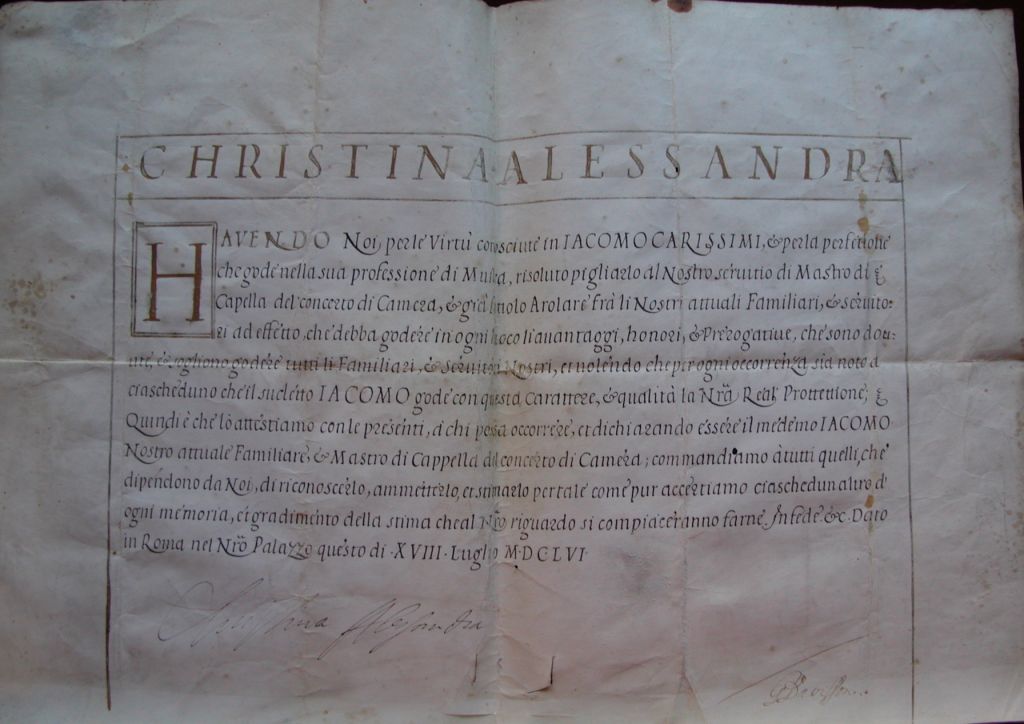 CHRISTINA ALESSANDRA
HAVENDO Noi, per le Virtù conosciute in IACOMO CARISSIMI, & per la perfetione
che gode nella sua professione di Musica, risoluto pigliarlo al Nostro servitio di Mastro di
Capella del concerto di Camera, & già Arolare frà li Nostri attuali Familiari, & Servito-
ri ad effetto, che debba godere in ogni luoco li avantaggi, honori, & Prerogative, che sono dou-
ute, & vogliono godere tutti li Familiari, & Servitori Nostri, et volendo che per ogni occorrenza sia noto à
ciascheduno che il sudetto IACOMO gode con questa Carattere, & qualità la Nr̃a Reale Prottettione;
Quindi è che lo attestiamo con le presenti, à chi possa occorrere, et dichiarando essere il medemo IACOMO
Nostro attuale Familiare, & Mastro di Cappella del concerto di Camera; commandiamo à tutti quelli, che
dipendono da Noi, di riconoscerlo, ammetterlo, et stimarlo per tale come pur accertiamo ciaschedun altro d'
ogni memoria, et gradimento della stima che al Nr̃o riguardo si compiaceranno farne. In fede &c. Dato
in Roma nel Nr̃o Palazzo questo di XVIII. Luglio M.DCLVI
Christina Alessandra